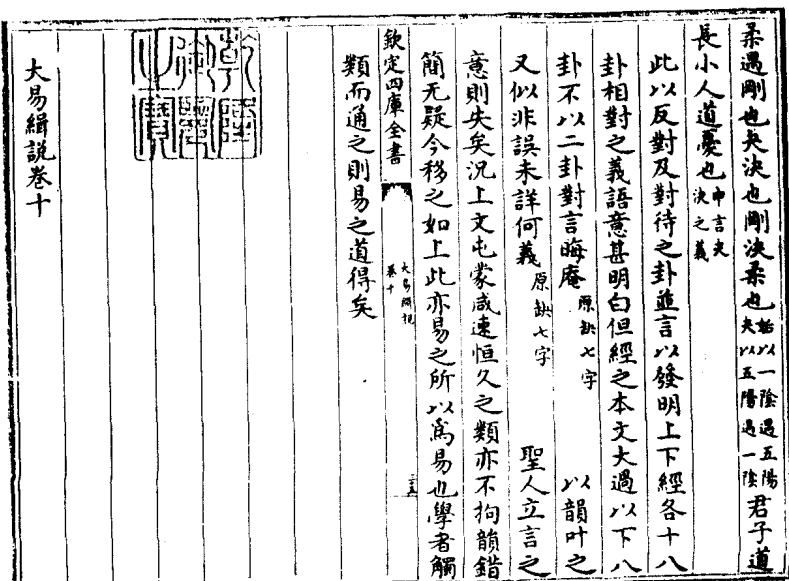 柔遇剛也夬決也剛決柔也姤以一陰遇五陽夬以五陽遇一陰君子道
長小人道憂也申言夬決之義
此以反對及對待之卦並言以發明上下經各十八
卦相對之義語意甚明白但經之本文大過以下八
卦不以二卦對言晦庵原缺七字以韻叶之
又似非誤未詳何義原缺七字聖人立言之
意則失矣況上文屯蒙咸速恒久之類亦不拘韻錯
簡无疑今移之如上此亦易之所以爲易也學者觸
欽定四庫全書
大易緝說
卷十
類而通之則易之道得矣
乾隆御覽之寶
大易緝說卷十